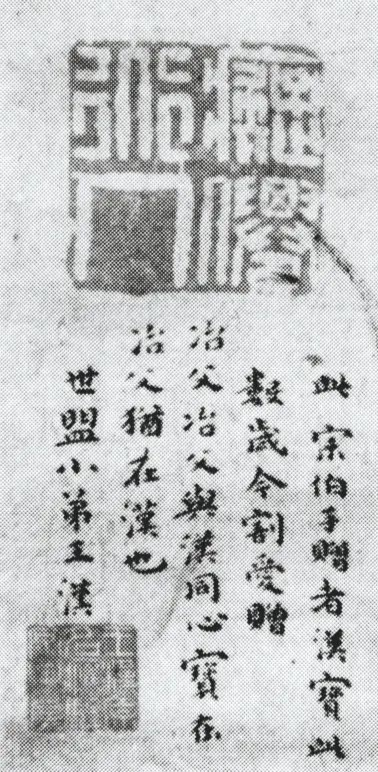 此宋伯子贈者漢寶此
數歲今割愛贈
冶父冶父與漢同心寶在
冶父猶在漢也
世盟小弟王漢